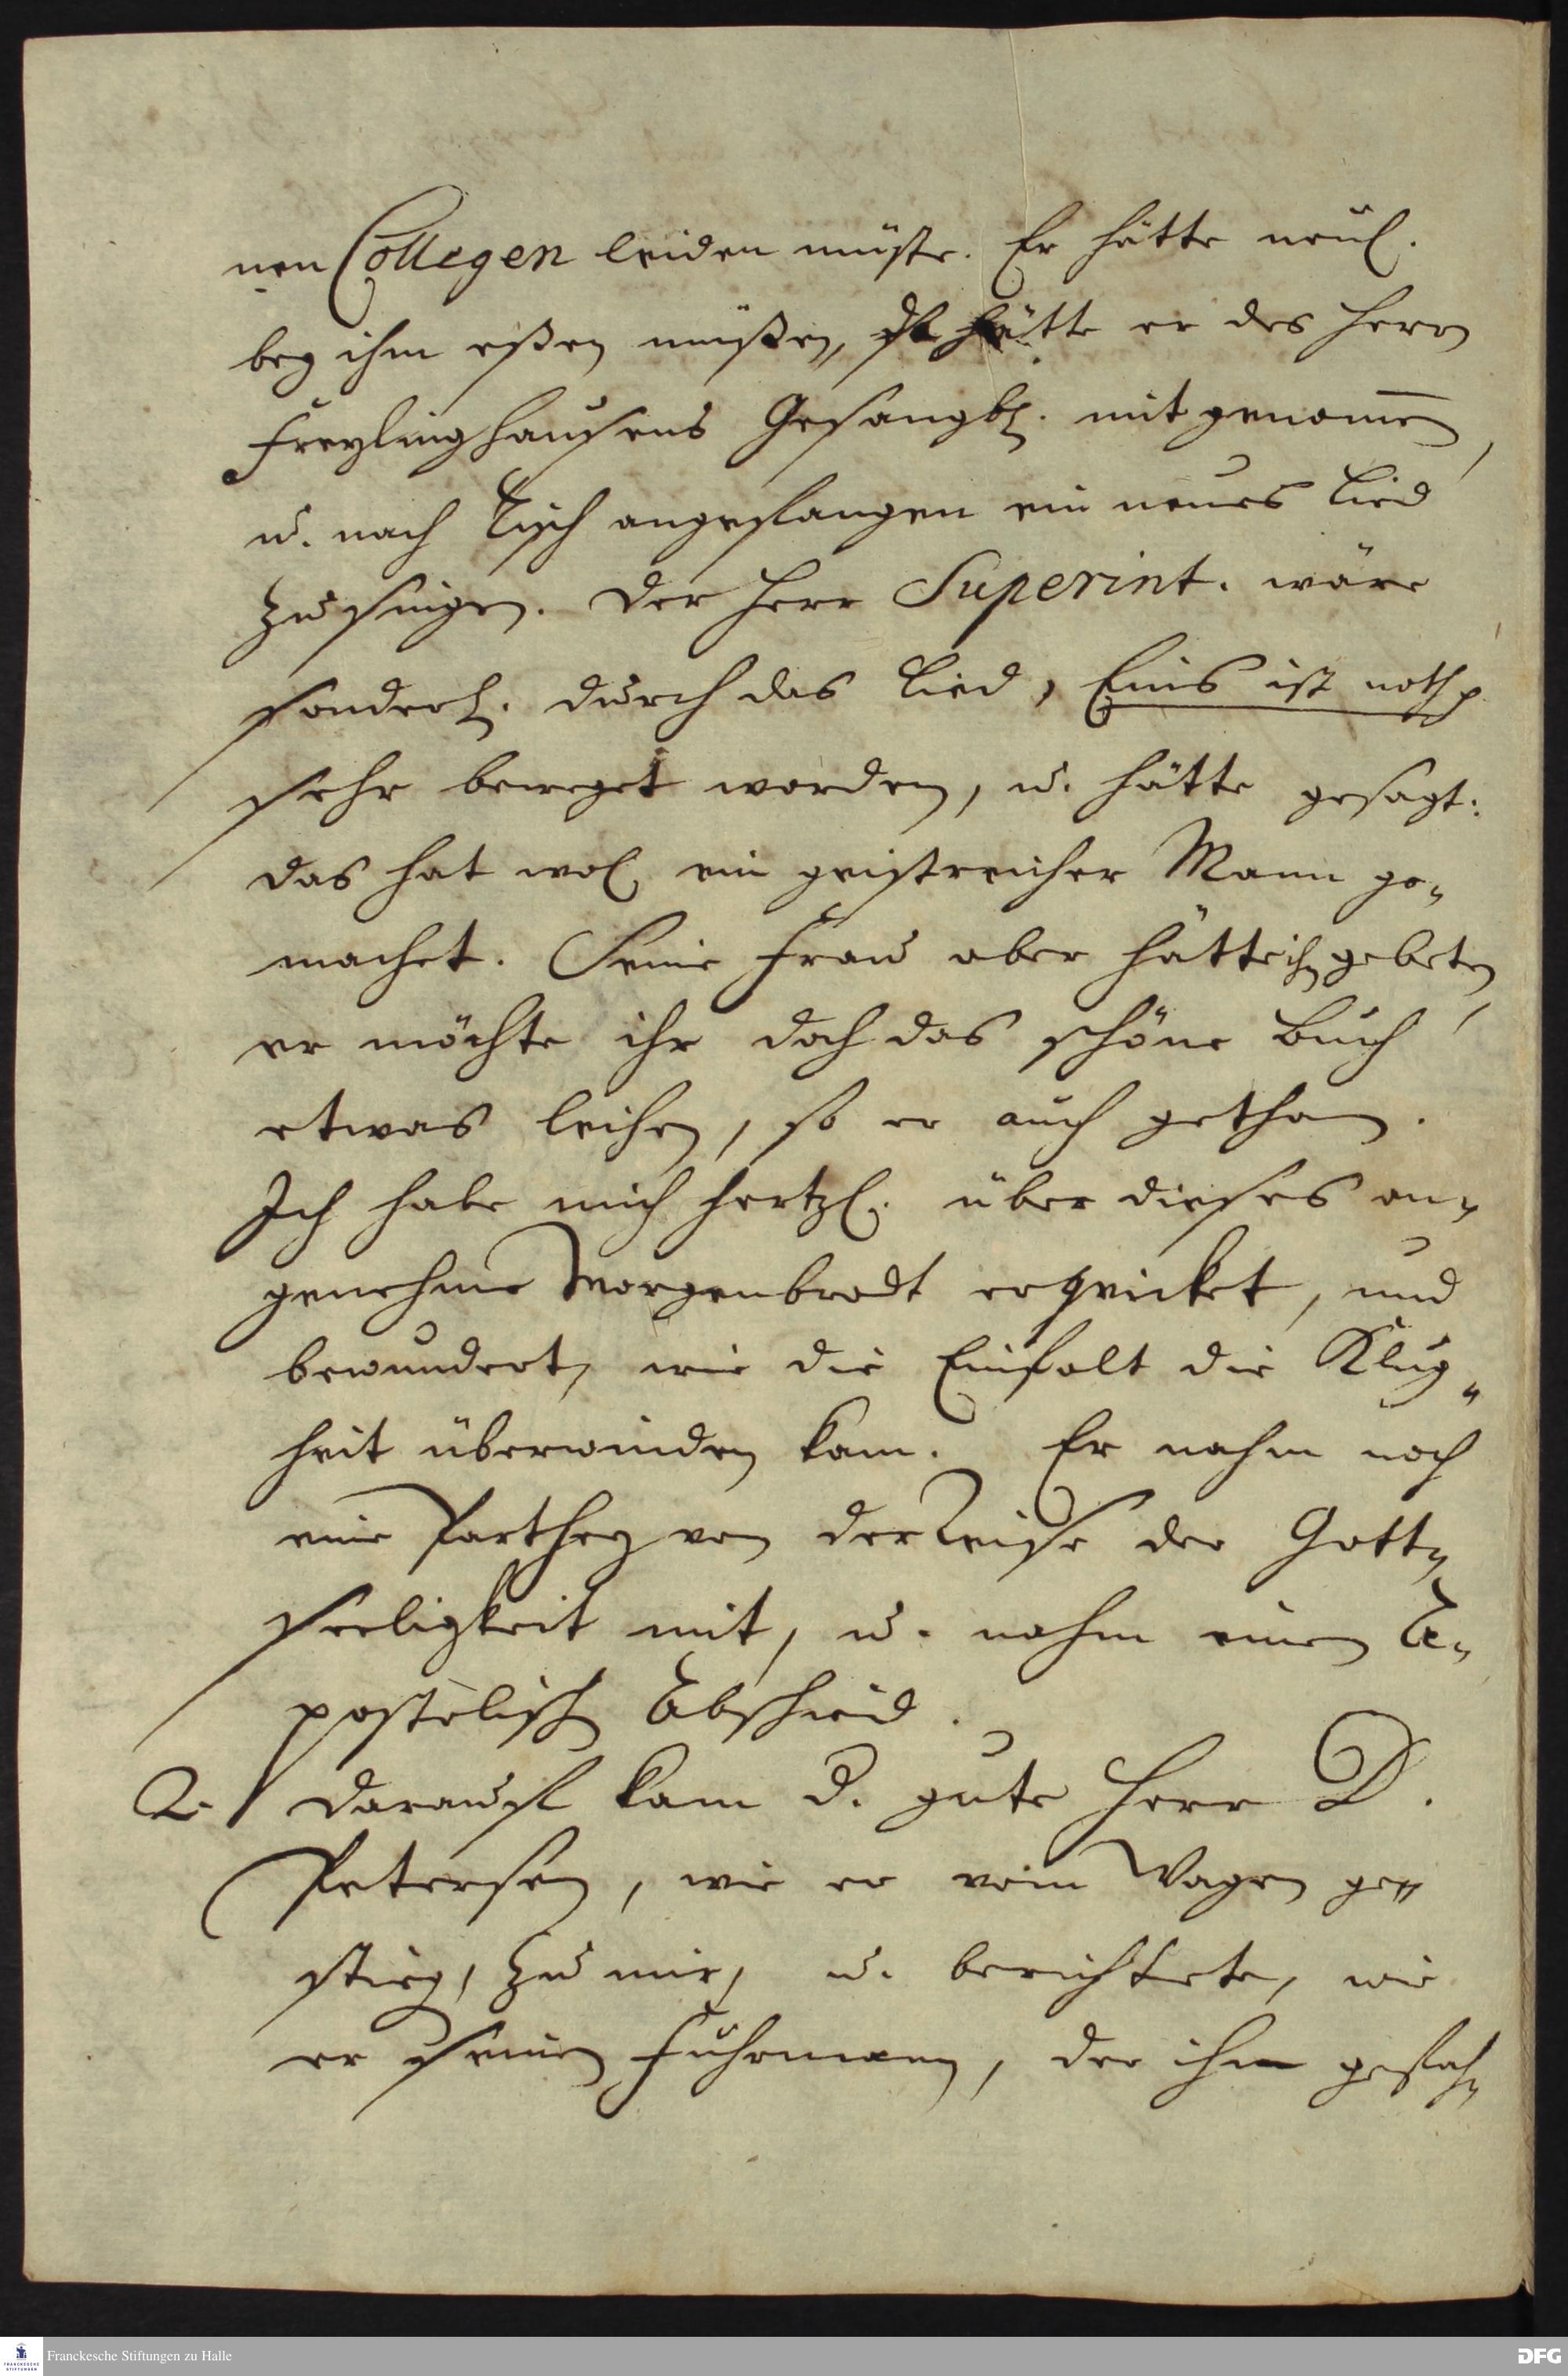 nen Collegen leiden müste. Er hätte neul.
bey ihm eßen müßen, da hätte er des Herrn
Freylinghausens Gesangb. mit genom̄en,
u. nach Tisch angefangen ein neues Lied
zu singen. Der Herr Superint. wäre
sonderl. durch das Lied, Eins ist noth p
sehr beweget worden, u. hätte gesagt:
das hat wol ein geistreicher Mann ge-
machet. Seine Frau aber hätte ihn gebeten,
er möchte ihr doch das schöne Buch
etwas leihen, so er auch gethan.
Ich habe mich hertzl. über dieses an-
genehme Morgenbrodt erqvicket, und
bewundert, wie die Einfalt die Klug-
heit überwinden kann. Er nahm noch
eine Parthey von der Weise der Gott-
seeligkeit mit, u. nahm einen A-
postolisch Abschied.
2. Darauf kam d. gute Herr D.
Petersen, wie er vom Wagen ge-
stieg, zu mir, u. berichtete, wie
er seinen Fuhrmann, der ihn gefah-
Franckesche Stiftungen zu Halle
DFG